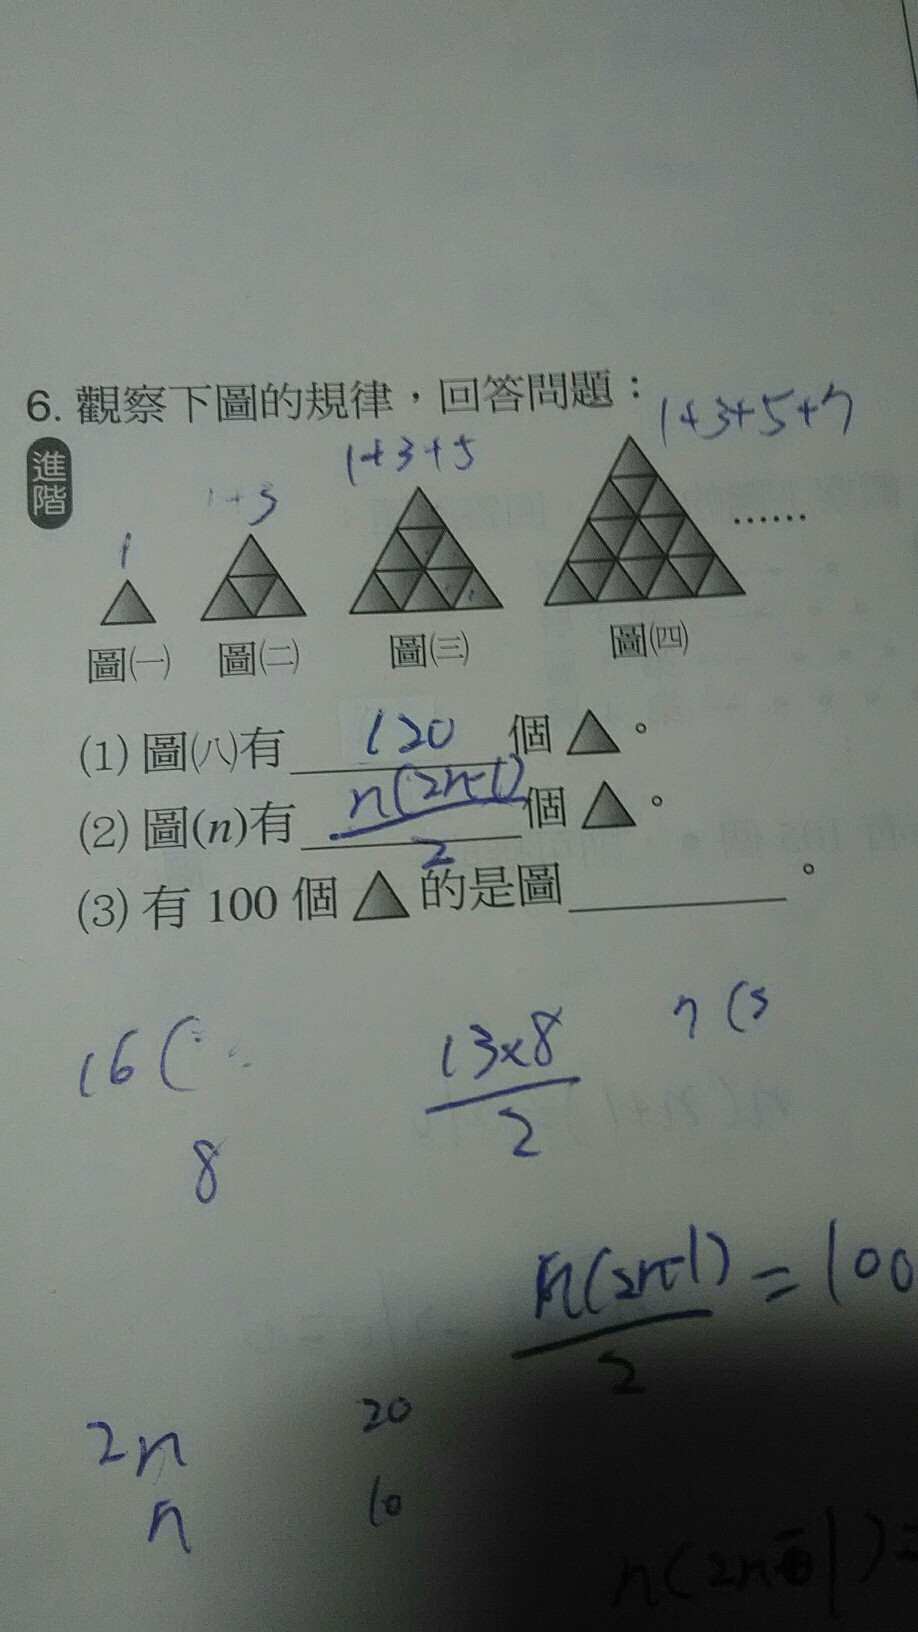 6. 觀察下圖的規律，回答問題：
進階
1
1+3
1+3+5
1+3+5+7
……
圖㈠ 圖㈡ 圖㈢ 圖㈣
(1) 圖㈧有 120 個▲。
(2) 圖(n)有 n(2n-1)/2 個▲。
(3) 有 100 個▲的是圖______。
16(
13×8/2
7(5
8
n(2n-1)/2 = 100
2n 20
n 10